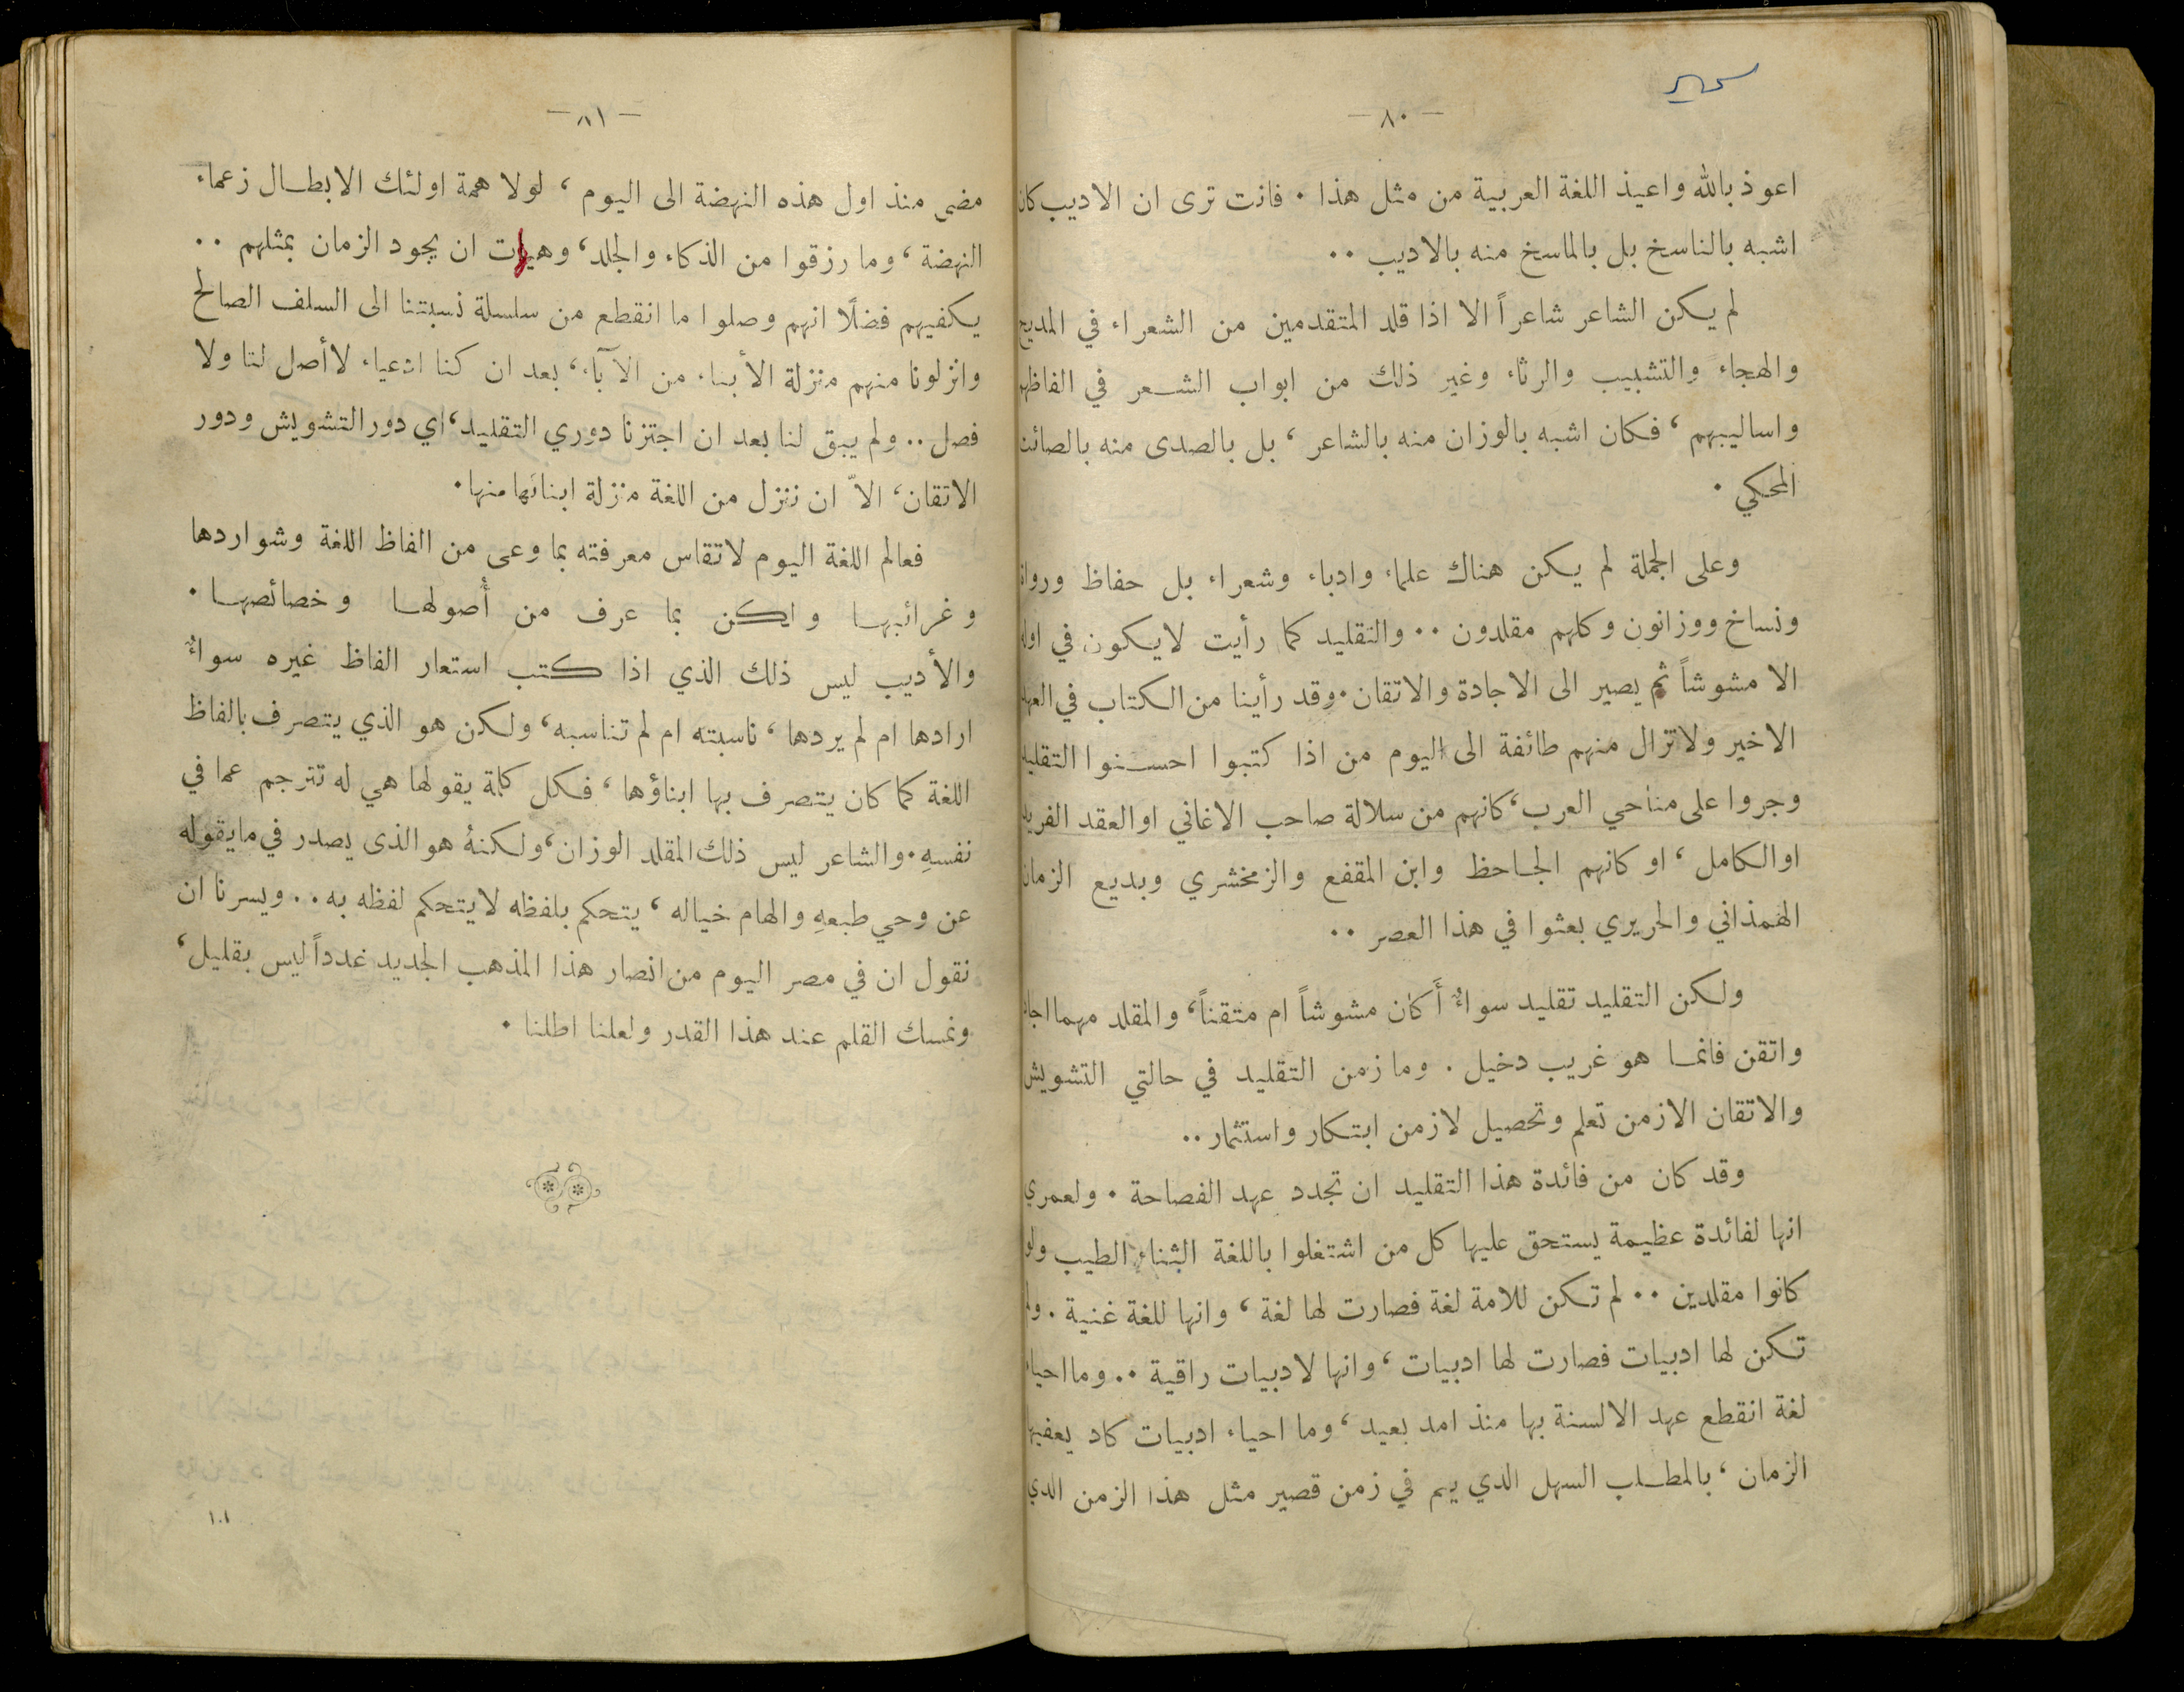 — ٨٠ —
اعوذ بالله واعيذ اللغة العربية من مثل هذا . فانت ترى ان الاديب كان
اشبه بالناسخ بل بالماسخ منه بالاديب ..
لم يكن الشاعر شاعراً الا اذا قلد المتقدمين من الشعراء في المديح
والهجاء والتشبيب والرثاء وغير ذلك من ابواب الشعر في الفاظهم
واساليبهم ، فكان اشبه بالوزان منه بالشاعر ، بل بالصدى منه بالصائت
المحكي .
وعلى الجملة لم يكن هناك علماء وادباء وشعراء بل حفاظ ورواة
ونساخ ووزانون وكلهم مقلدون .. والتقليد كما رأيت لا يكون في اوله
الا مشوشاً ثم يصير الى الاجادة والاتقان . وقد رأينا من الكتاب في العهد
الاخير ولا تزال منهم طائفة الى اليوم من اذا كتبوا احسنوا التقليد
وجروا على مناحي العرب ، كانهم من سلالة صاحب الاغاني او العقد الفريد
او الكامل ، او كانهم الجاحظ وابن المقفع والزمخشري وبديع الزمان
الهمذاني والحريري بعثوا في هذا العصر ..
ولكن التقليد تقليد سواءٌ أَكان مشوشاً ام متقناً ، والمقلد مهما اجاد
واتقن فانما هو غريب دخيل . وما زمن التقليد في حالتي التشويش
والاتقان الا زمن تعلم وتحصيل لا زمن ابتكار واستثمار ..
وقد كان من فائدة هذا التقليد ان تجدد عهد الفصاحة . ولعمري
انها لفائدة عظيمة يستحق عليها كل من اشتغلوا باللغة الثناء الطيب ولو
كانوا مقلدين .. لم تكن للامة لغة فصارت لها لغة ، وانها للغة غنية . ولم
تكن لها ادبيات فصارت لها ادبيات ، وانها لادبيات راقية .. وما احياء
لغة انقطع عهد الالسنة بها منذ امد بعيد ، وما احياء ادبيات كاد يعفيها
الزمان ، بالمطلب السهل الذي يتم في زمن قصير مثل هذا الزمن الذي
— ٨١ —
مضى منذ اول هذه النهضة الى اليوم ، لولا همة اولئك الابطال زعماء
النهضة ، وما رزقوا من الذكاء والجلد ، وهيهات ان يجود الزمان بمثلهم ..
يكفيهم فضلًا انهم وصلوا ما انقطع من سلسلة نسبتنا الى السلف الصالح
وانزلونا منهم منزلة الأبناء من الآباء ، بعد ان كنا ادعياء لا أصل لنا ولا
فصل .. ولم يبق لنا بعد ان اجتزنا دوري التقليد ، اي دور التشويش ودور
الاتقان ، الاّ ان ننزل من اللغة منزلة ابنائها منها .
فعالم اللغة اليوم لا تقاس معرفته بما وعى من الفاظ اللغة وشواردها
وغرائبها ولكن بما عرف من أصولها وخصائصها .
والأديب ليس ذلك الذي اذا كتب استعار الفاظ غيره سواءٌ
ارادها ام لم يردها ، ناسبته ام لم تناسبه ، ولكن هو الذي يتصرف بالفاظ
اللغة كما كان يتصرف بها ابناؤها ، فكل كلمة يقولها هي له تترجم عما في
نفسهِ . والشاعر ليس ذلك المقلد الوزان ، ولكنهُ هو الذي يصدر في ما يقوله
عن وحي طبعهِ والهام خياله ، يتحكم بلفظه لا يتحكم لفظه به .. ويسرنا ان
نقول ان في مصر اليوم من انصار هذا المذهب الجديد عدداً ليس بقليل ،
ونمسك القلم عند هذا القدر ولعلنا اطلنا .